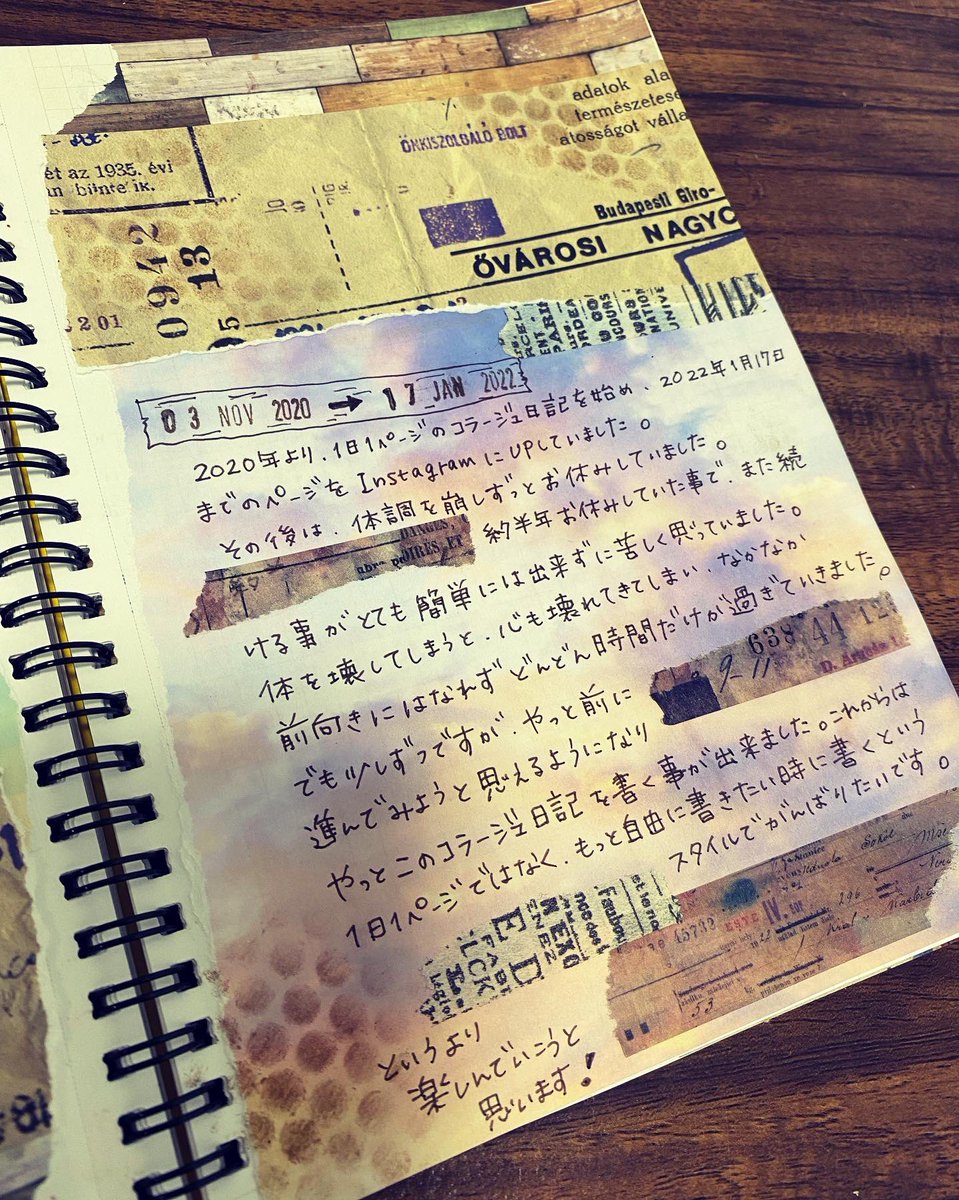 adatok ala
természetese
atosságot válla
ÖNKISZOLGÁLÓ BOLT
ét az 1935. évi
Budapesti Giro-
ŐVÁROSI NAGYC
0942
13
201
95
03 NOV 2020 → 17 JAN 2022
2020年より、1日1ページのコラージュ日記を始め、2022年1月17日
までのページを InstagramにUPしていました。
その後は、体調を崩しずっとお休みしていました。
約半年お休みしていた事で、また続
ける事がとても簡単には出来ずに苦しく思っていました。
体を壊してしまうと、心も壊れてきてしまい、なかなか
前向きにはなれずどんどん時間だけが過ぎていきました。
でも少しずつですが、やっと前に
進んでみようと思えるようになり
やっとこのコラージュ日記を書く事が出来ました。これからは
1日1ページではなく、もっと自由に書きたい時に書くという
スタイルでがんばりたいです。
というより
楽しんでいこうと
思います!
DANGES
638 44 12
9-11
D.
15732
IV.
296
53